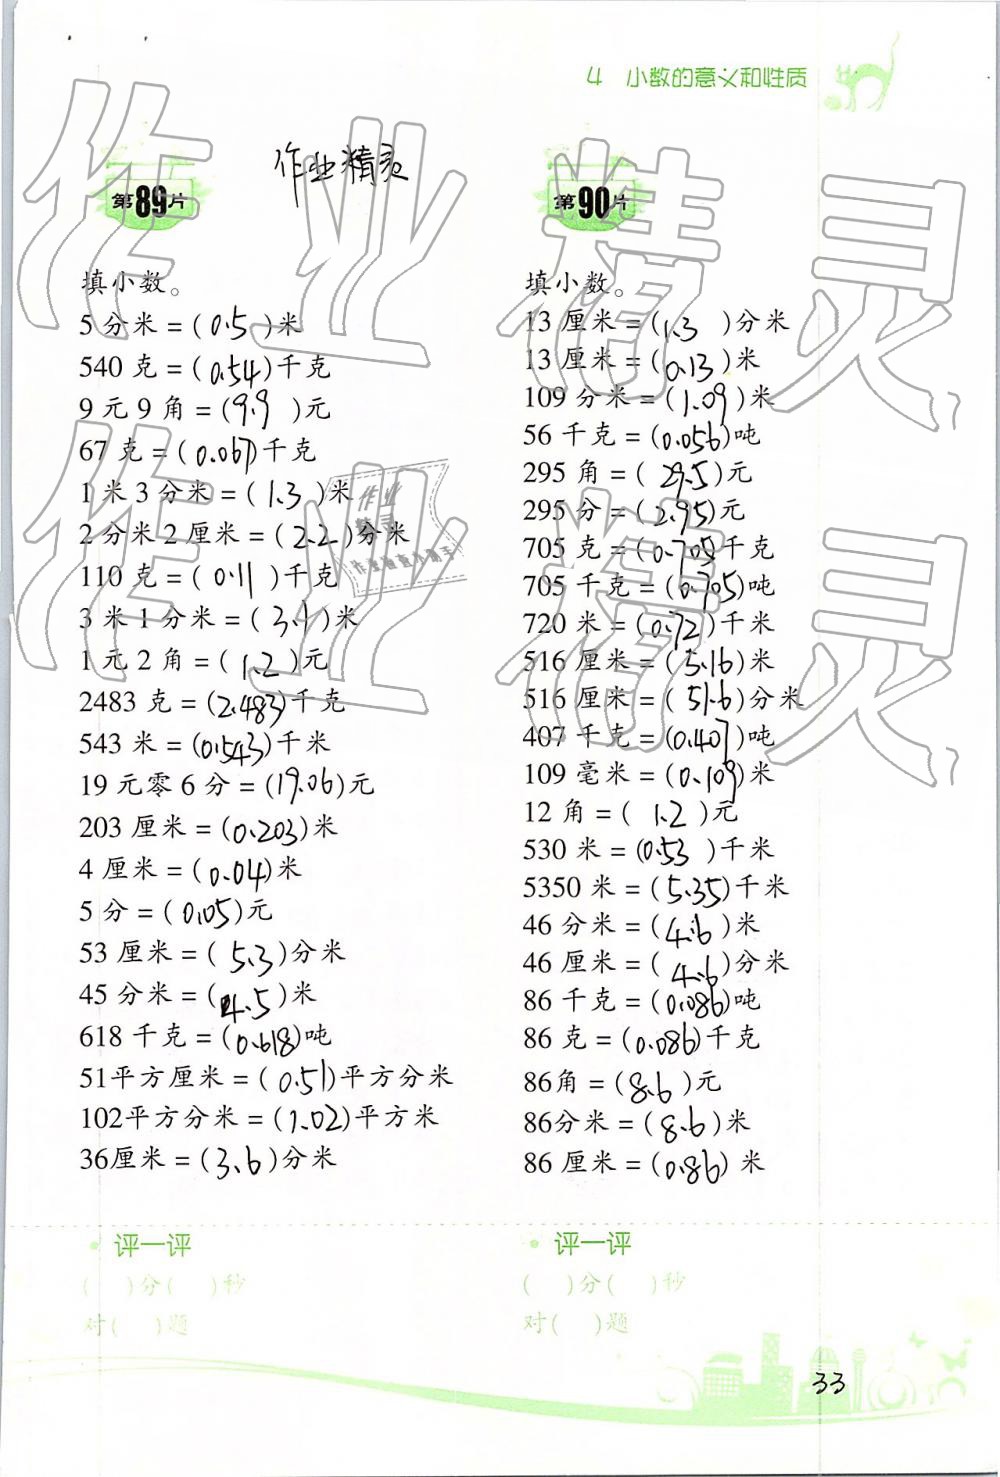 4 小数的意义和性质
作业精灵
第89片
填小数。
5分米=(0.5)米
540克=(0.54)千克
9元9角=(9.9)元
67克=(0.067)千克
1米3分米=(1.3)米
2分米2厘米=(2.2)分米
110克=(0.11)千克
3米1分米=(3.1)米
1元2角=(1.2)元
2483克=(2.483)千克
543米=(0.543)千米
19元零6分=(19.06)元
203厘米=(0.203)米
4厘米=(0.04)米
5分=(0.05)元
53厘米=(5.3)分米
45分米=(4.5)米
618千克=(0.618)吨
51平方厘米=(0.51)平方分米
102平方分米=(1.02)平方米
36厘米=(3.6)分米
评一评
( )分( )秒
对( )题
第90片
填小数。
13厘米=(1.3)分米
13厘米=(0.13)米
109分米=(1.09)米
56千克=(0.056)吨
295角=(29.5)元
295分=(2.95)元
705克=(0.705)千克
705千克=(0.705)吨
720米=(0.72)千米
516厘米=(5.16)米
516厘米=(51.6)分米
407千克=(0.407)吨
109毫米=(0.109)米
12角=(1.2)元
530米=(0.53)千米
5350米=(5.35)千米
46分米=(4.6)米
46厘米=(4.6)分米
86千克=(0.086)吨
86克=(0.086)千克
86角=(8.6)元
86分米=(8.6)米
86厘米=(0.86)米
评一评
( )分( )秒
对( )题
33
作业精灵
作业精灵
作业
精灵
作业检查小助手